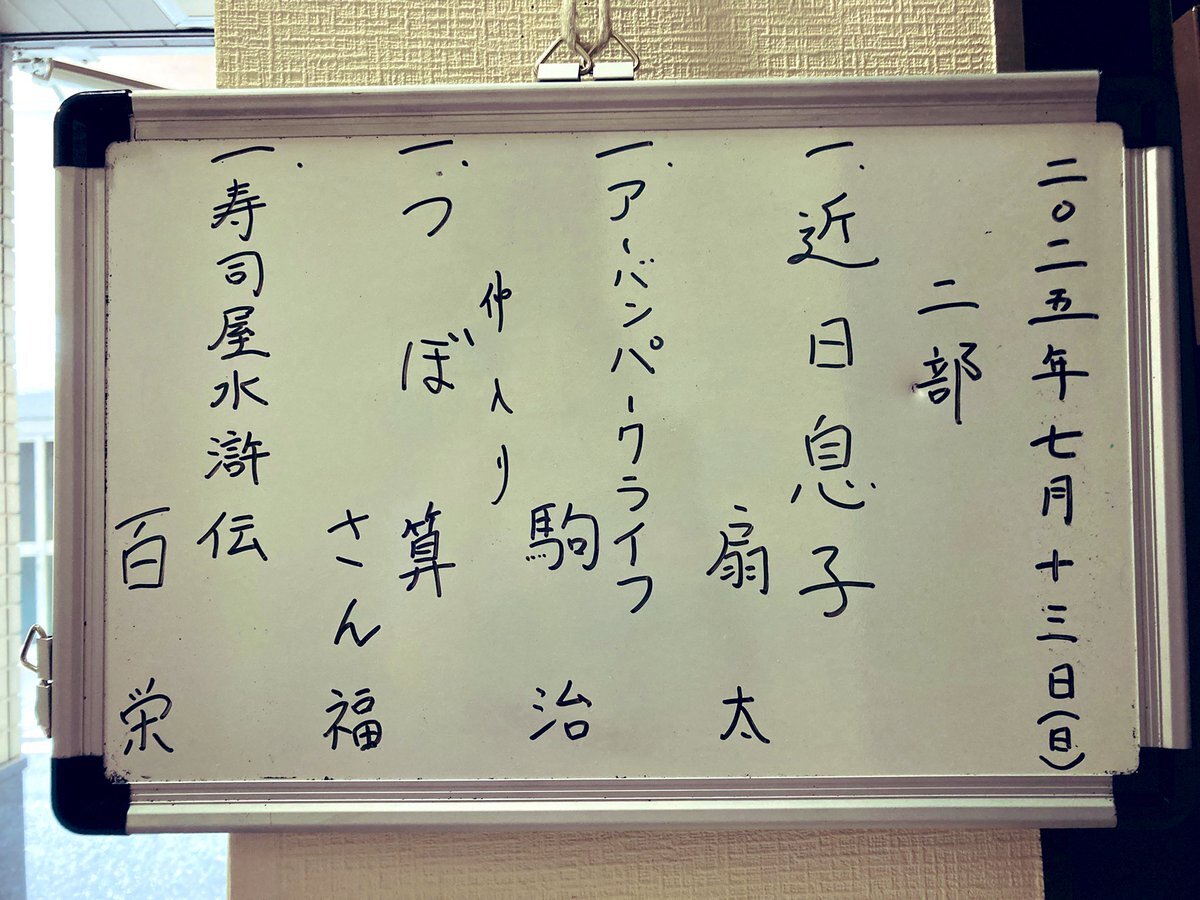 二〇二五年七月十三日(日)
二部
一.近日息子
扇太
一.アーバンパークライフ
駒治
仲入り
一.つぼ算
さん福
一.寿司屋水滸伝
百栄